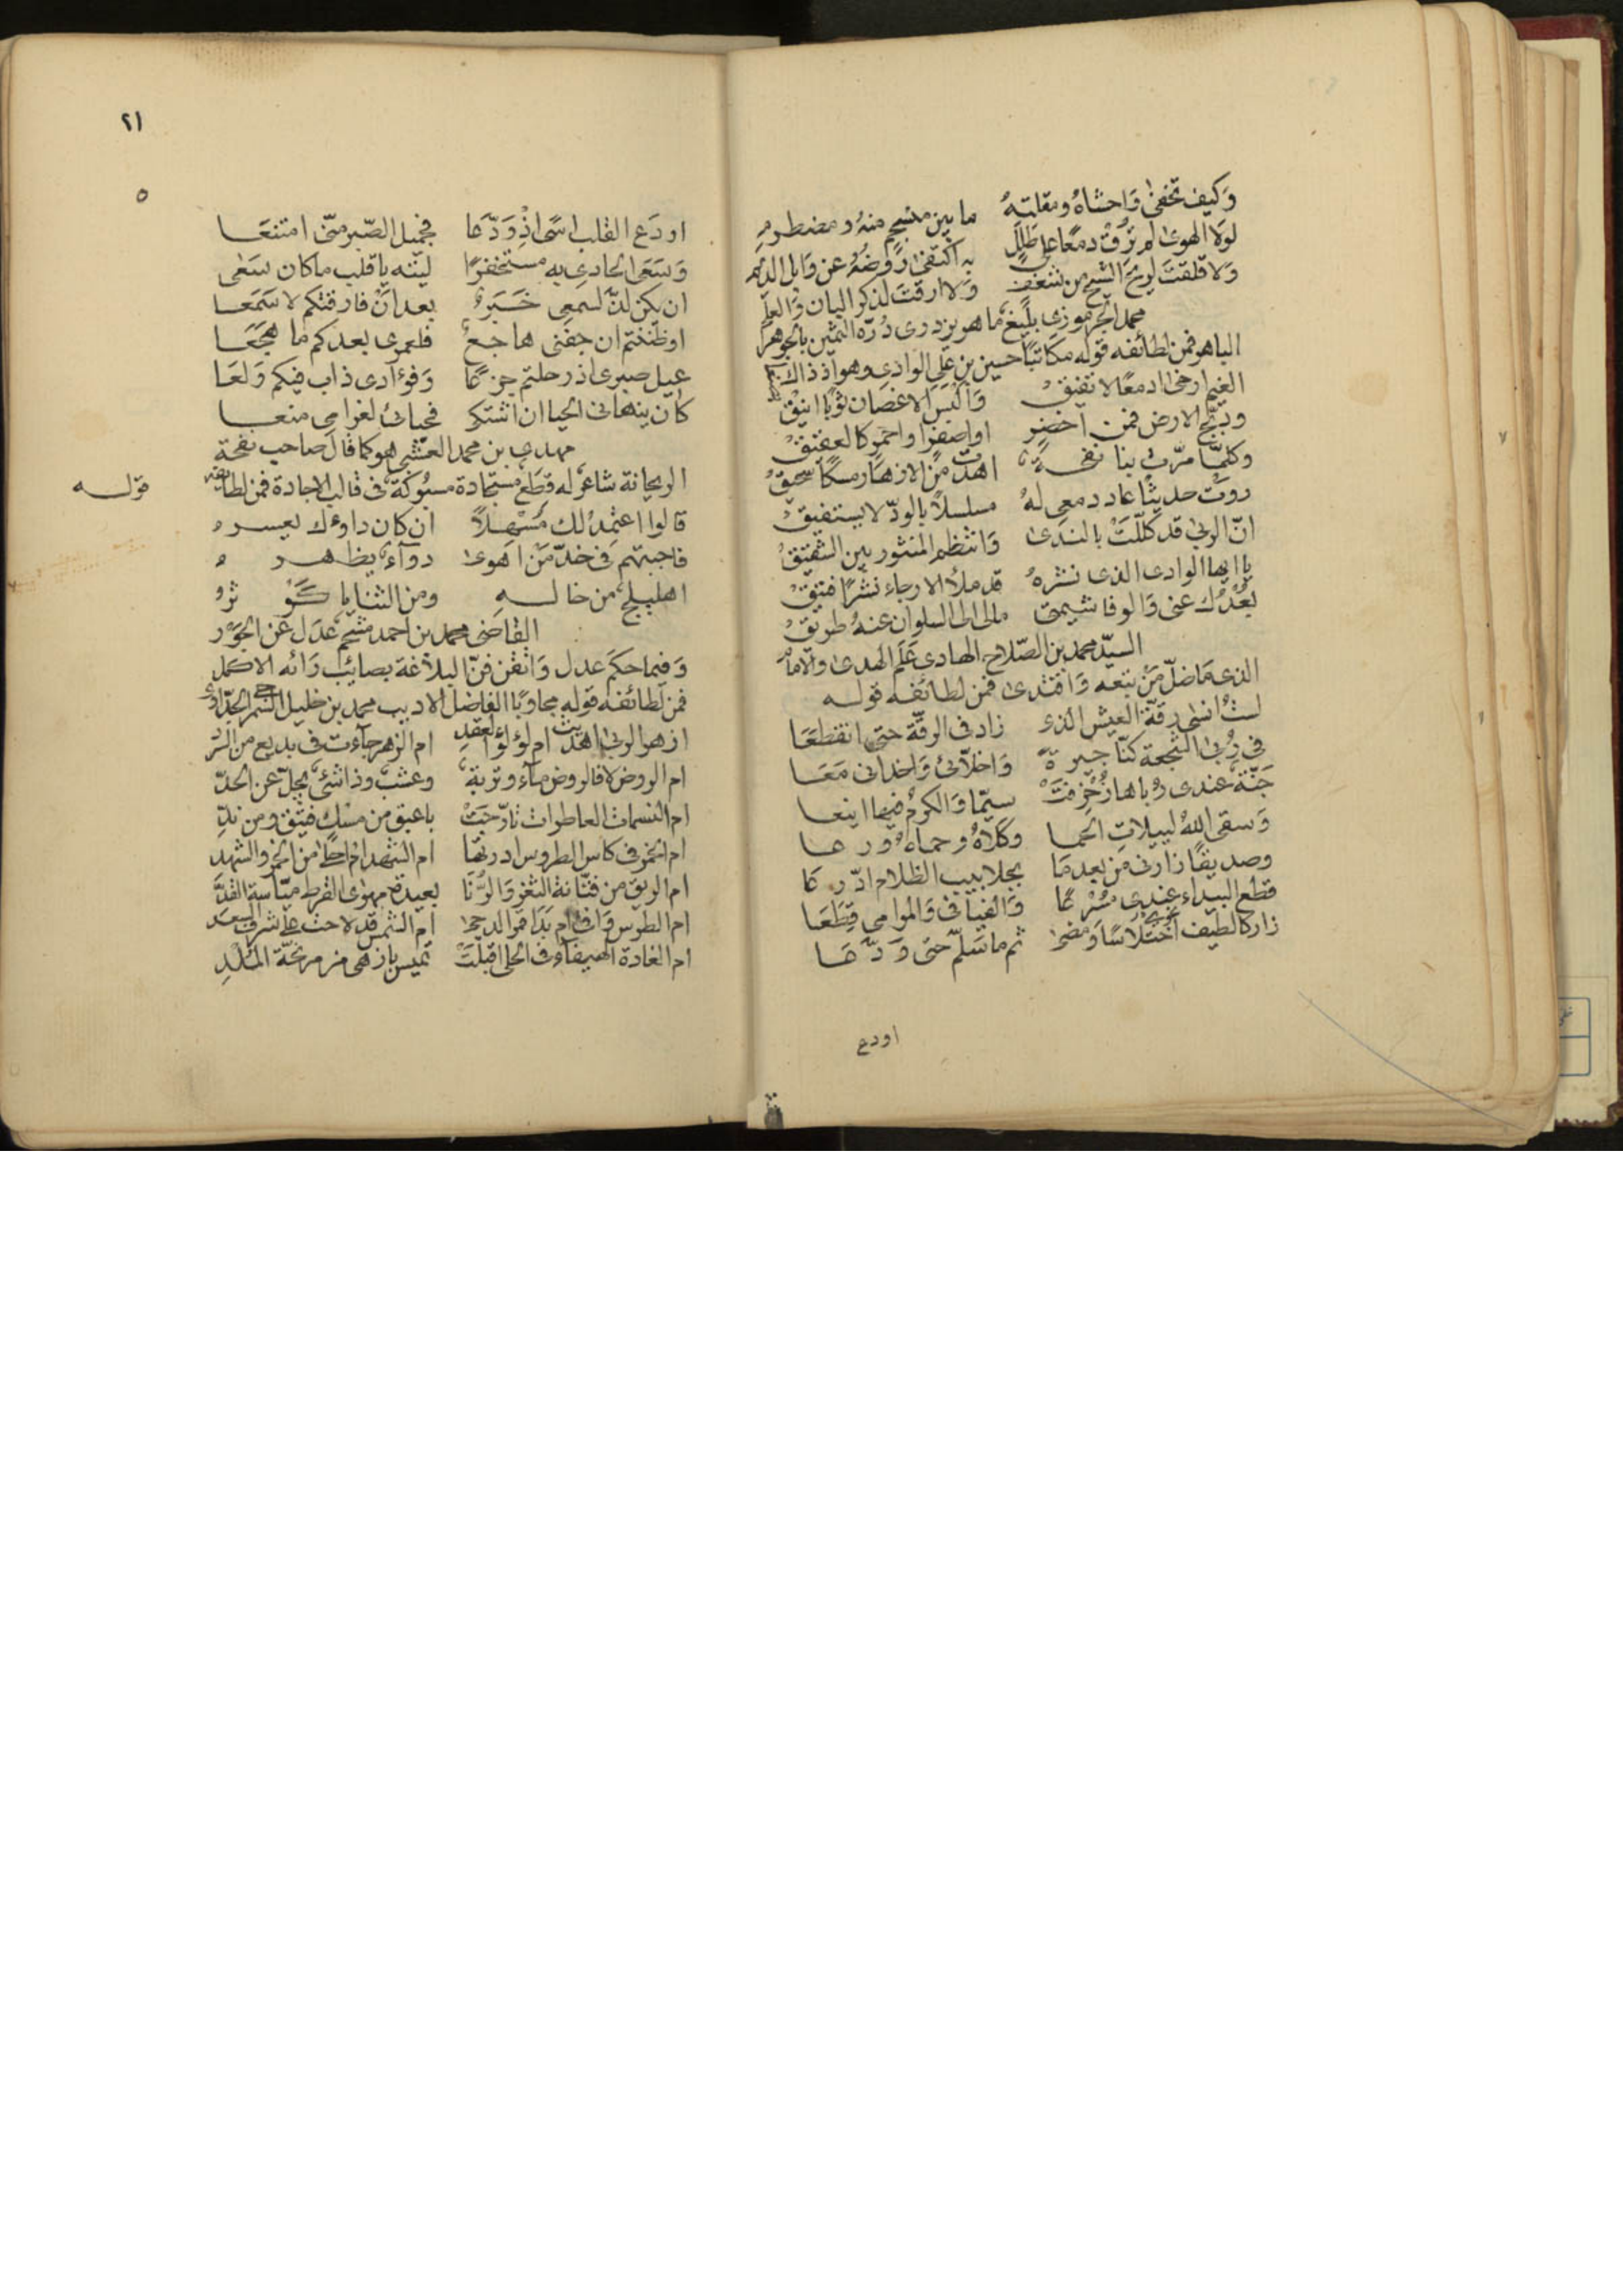 وَكيف تخفىٰ وَاحشاهُ ومقلتهُ ما بين منسجم منهُ ومضطرمِ
لولا الهوىٰ لم ترُق دمعًا على طَللٍ به اكتفىٰ رَوضُهُ عن وَابل الديم
وَلا قلقتَ لريح الشيح من شغفٍ وَلا ارقتَ لذكر البان وَالعلم
محمد الجرموزى بليغ ما هو يزدرى دُرّه الثمين بالجوهر
الباهر فمن لطائفه قوله مكاتبًا حسين بن علي الوادي وهو اذ ذاك
الغيم ارخىٰ ادمعًا لا تفيقُ وَالبسَ الاغصان ثوبًا انيقْ
ودبّج الارض فمن اخضر او اصفرا واحمر كالعقيقْ
وكلمّا مرّت بنا نفحةٌ اهدت من الازهار مسكًا سحيقْ
روَتْ حديثًا عاد دمعى لهُ مسلسلاً بالودّ لا يستفيقْ
انّ الربىٰ قد كُلّلَتْ بالندىٰ وَانتظم المنثور بين الشقيقْ
يا ايها الوادى الذى نشرهُ قد ملأ الارجاء نشرًا فتيقْ
بُعْدُك عنى وَالوفا شيمتى مالى الى السلوان عنهُ طريقْ
السيّد محمد بن الصّلاح الهادى عَلَم الهدى والامام
الذى مَا ضلّ مَنْ تبعه وَاقتدى فمن لطائفه قوله
لستُ انسى رقّة العيش الذى زاد فى الرقّة حتى انقطعَا
فى رُبىٰ النجعة كنّا جيرةً وَاخلّائى وَاخدانى مَعَا
جَنّة عندى رُباها زُخرِفتْ سيّما وَالكرمُ فيها اينعا
وَسقى اللّٰهُ لييلاتِ الحما وكلاهُ وحماهُ ورعا
وصديقًا زارنى من بعد مَا بجلابيب الظلام ادّرعَا
قطع البيداء عندى مُسْرعًا وَالفيافى وَالموامى قِطَعَا
زار كالطيف اختلاسًا وَمضىٰ ثم ما سَلّم حتى وَدّعَا
اودع
٢١
٥
اودَع القلب اسًى اذْ وَدّعَا فجميل الصّبر منّى امتنعَا
وَسَعَى الحادى به مستخفرًا ليته يا قلب ما كان سَعَى
ان يكن لذّ لسمعى خَبَرٌ بعد انْ فارقتكم لا سَمَعَا
او ظننتم ان جفنى هاجعٌ فلعمرى بعدكم ما هجعَا
عيل صبرى اذ رحلتم جزعًا وَفؤادى ذاب فيكم وَلعَا
كان ينهانى الحيا ان اشتكى فحيائى لغرامى منعَا
مهدى بن محمد العشبى هو كما قال صاحب نفحة
الريحانة شاعر له قطَع مستجادة مسبُوكة فى قالب الاجادة فمن لطائفه
قولـــه
قالوا اعتمِدْ لك مُسْهِلاً ان كان داؤك يعسرُ
فاجبتهم فى خدّ مَنْ اهوىٰ دوآء يظهرُ
اهليلج من خاله ومن الثنايا كَوْثرُ
القاضى محمد بن احمد مشحم عدَل عَن الجَوْر
وَفيما حكَم عدل وَاتقن فنّ البلاغة بصائب رَائه الاكمل
فمن لطائفه قوله مجاوبًا الفاضل الاديب محمد بن خليل السّمرجى الجدّاوى
ازهر الربىٰ اهديت ام لؤلؤ العقدِ ام الزهر جآءت فى بديع من السّردِ
ام الروض لا فالروض مآء وتربةٌ وعشب وذا شئى يجلّ عن الحدّ
ام النسمات العاطرات تأرّجَتْ باعبق من مسكٍ فتيق ومن ندّ
ام الخمر فى كاس الطروس ادرتها ام الشهد احلىٰ من الخمر والشهد
ام الريق من فتّانة الثغر وَالرَّنَا بعيدة مهوى القرط ميّاسة القدّ
ام الطرس وَافىٰ ام بَدَا قمر الدجىٰ ام الشمس قد لاحت على شرف السعد
ام الغادة الهيفاء فى الحلى اقبلَتْ تميس بازهى من مرنحة الملْدِ